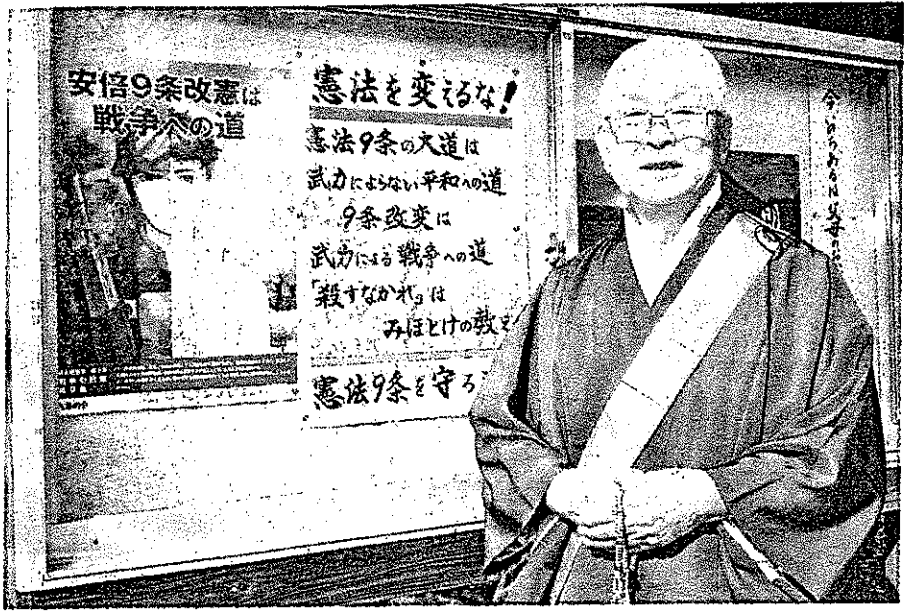 安倍9条改憲は
戦争への道
憲法を変えるな!
憲法9条の大道は
武力によらない平和への道
9条改変は
武力による戦争への道
「殺すなかれ」は
みほとけの教え
憲法9条を守る
今いのちあるは父母の